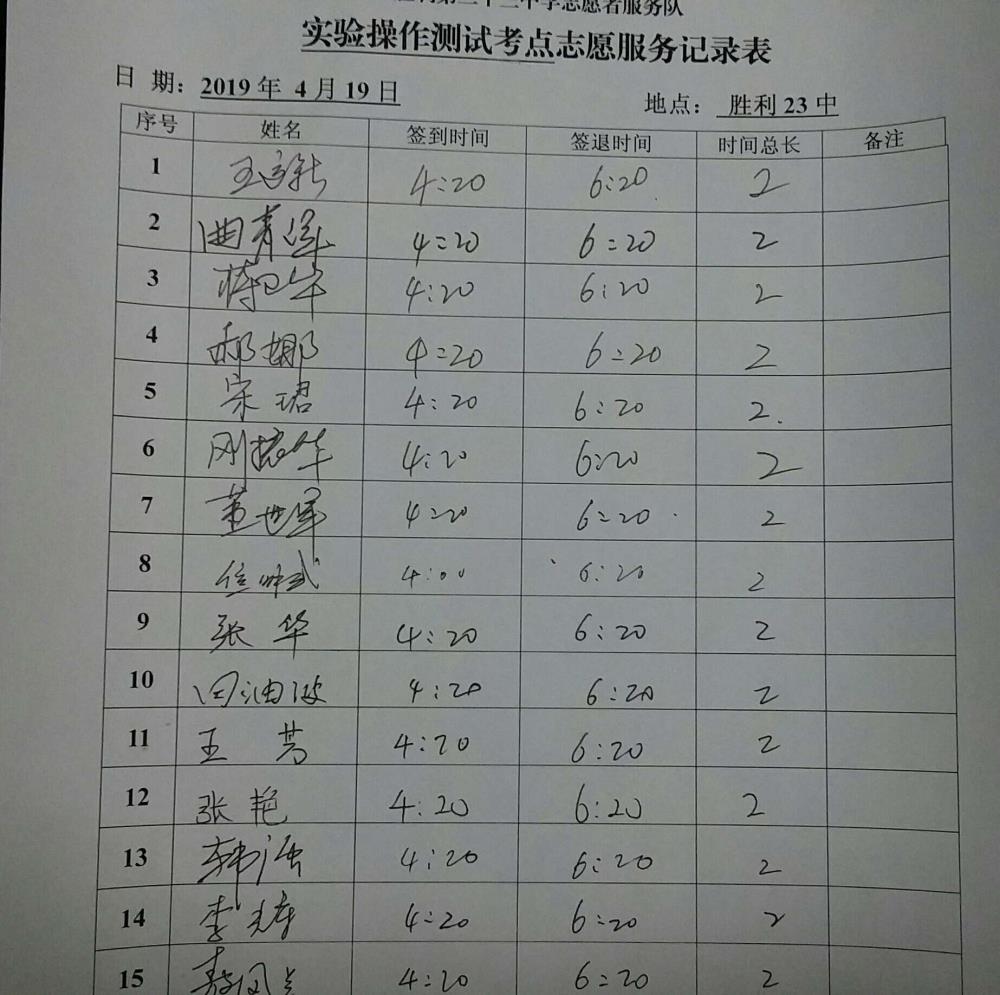 胜利第二十三中学志愿者服务队
实验操作测试考点志愿服务记录表
日 期: 2019 年 4 月 19 日 地点: 胜利 23 中
序号 姓名 签到时间 签退时间 时间总长 备注
1 4:20 6:20 2
2 曲青军 4:20 6:20 2
3 蒋卫华 4:20 6:20 2
4 郝娜 4:20 6:20 2
5 宋珺 4:20 6:20 2.
6 刚振华 4:20 6:20 2
7 董世军 4:20 6:20 2
8 4:00 6:20 2
9 张华 4:20 6:20 2
10 4:20 6:20 2
11 王芳 4:20 6:20 2
12 张艳 4:20 6:20 2
13 韩强 4:20 6:20 2
14 李涛 4:20 6:20 2
15 4:20 6:20 2